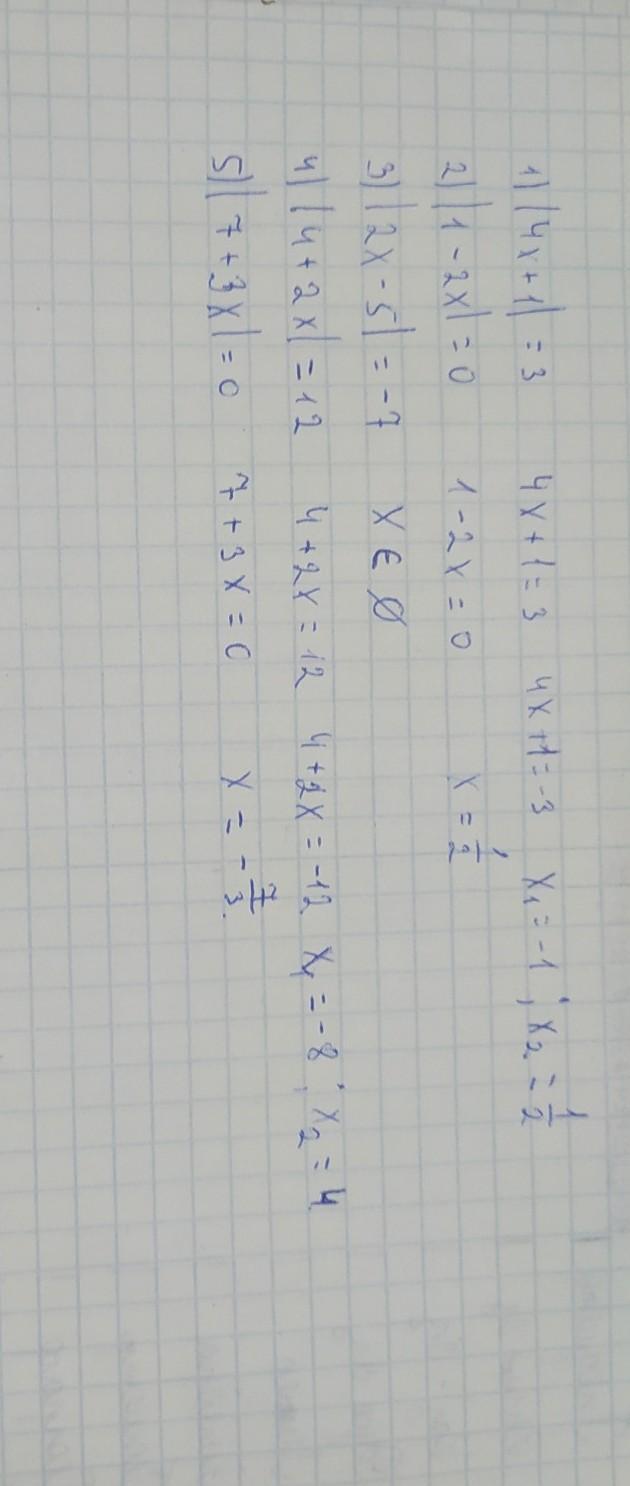 1) |4x+1| = 3 4x+1=3 4x+1=-3 x₁=-1; x₂=1/2
2) |1-2x|=0 1-2x=0 x=1/2
3) |2x-5|=-7 x∈∅
4) |4+2x|=12 4+2x=12 4+2x=-12 x₁=-8; x₂=4
5) |7+3x|=0 7+3x=0 x=-7/3